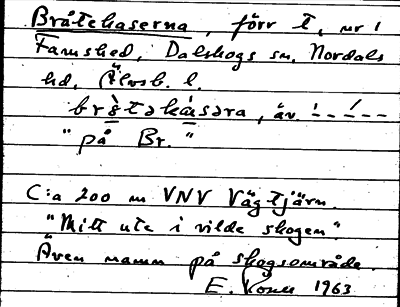 Bråtekaserna, förr t. nr 1
Famshed, Dalskogs sn. Nordals
hd, Älvsb. l.
bråtəkàsəra, äv. '- - ´- -
"på Br."
C:a 200 m VNV Vägtjärn.
"Mitt ute i vilde skogen".
Även namn på skogsområde.
E. 1963